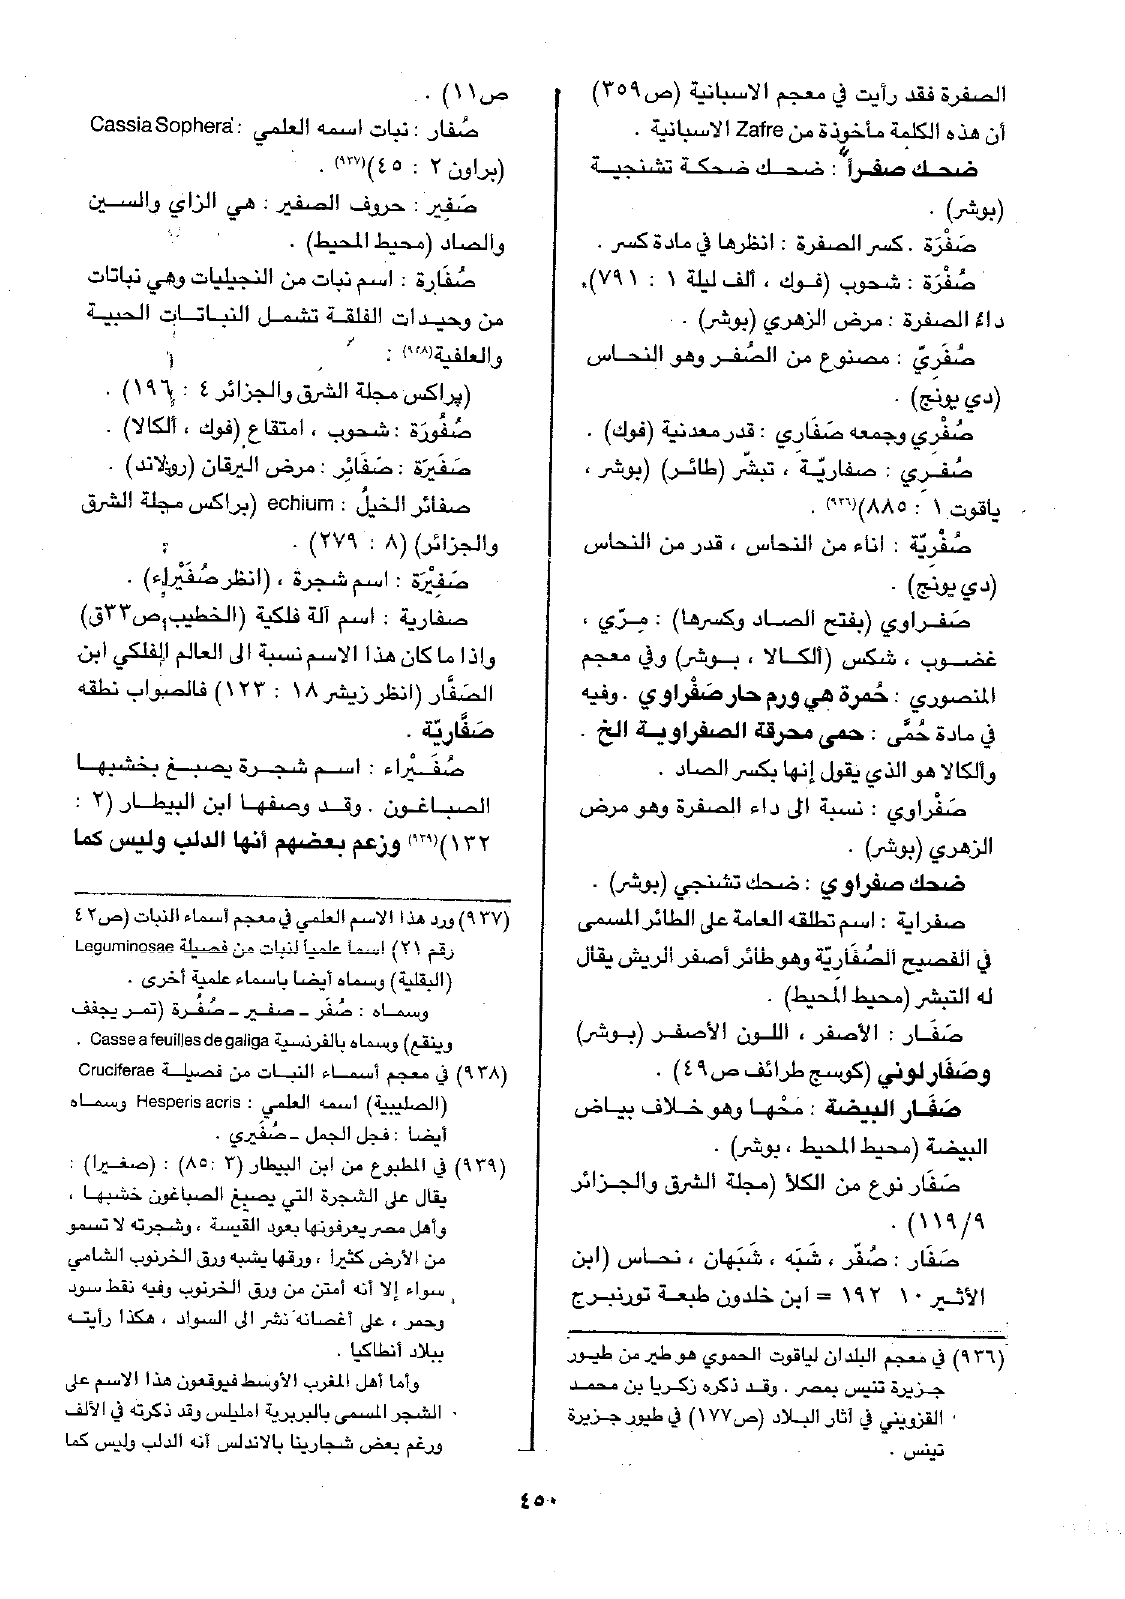 الصفرة فقد رأيت في معجم الاسبانية (ص٣٥٩)
أن هذه الكلمة مأخوذة من Zafre الاسبانية .
ضحك صفراً : ضحك ضحكة تشنجية
(بوشر) .
صَفْرَة . كسر الصفرة : انظرها في مادة كسر .
صُفْرَة : شحوب (فوك ، ألف ليلة ١ : ٧٩١)،
داء الصفرة : مرض الزهري (بوشر) .
صُفْرَيّ : مصنوع من الصُفر وهو النحاس
(دي يونج) .
صُفْري وجمعه صَفَاري : قدر معدنية (فوك) .
صُفَري : صفاريّة ، تبشّر (طائر) (بوشر ،
ياقوت ١ : ٨٨٥)(٩٣٦) .
صُفْريّة : اناء من النحاس ، قدر من النحاس
(دي يونج) .
صَفراوي (بفتح الصاد وكسرها) : مِرّي ،
غضوب ، شكس (ألكالا ، بوشر) وفي معجم
المنصوري : حُمرة هي ورم حار صَفْراوي . وفيه
في مادة حُمَّى : حمى محرقة الصفراوية الخ .
وألكالا هو الذي يقول إنها بكسر الصاد .
صَفْراوي : نسبة الى داء الصفرة وهو مرض
الزهري (بوشر) .
ضحك صفراوي : ضحك تشنجي (بوشر) .
صفراية : اسم تطلقه العامة على الطائر المسمى
في الفصيح الصُفَاريّة وهو طائر أصفر الريش يقال
له التبشر (محيط المحيط) .
صَفَار : الأصفر ، اللون الأصفر (بوشر)
وصَفَارلوني (كوسج طرائف ص٤٩) .
صَفَار البيضة : مخّها وهو خلاف بياض
البيضة (محيط المحيط ، بوشر) .
صَفَار نوع من الكلأ (مجلة الشرق والجزائر
٩/١١٩) .
صَفَار : صُفّر ، شَبَه ، شَبَهان ، نحاس (ابن
الأثير ١٠ ١٩٢ = ابن خلدون طبعة تورنبرج
(٩٣٦) في معجم البلدان لياقوت الحموي هو طير من طيور
جزيرة تنيس بمصر . وقد ذكره زكريا بن محمد
القزويني في آثار البلاد (ص١٧٧) في طيور جزيرة
تينس .
ص١١) .
صُفار : نبات اسمه العلمي : Cassia Sophera
(براون ٢ : ٤٥)(٩٣٧) .
صَفير : حروف الصفير : هي الزاي والسين
والصاد (محيط المحيط) .
صُفَارة : اسم نبات من النجيليات وهي نباتات
من وحيدات الفلقة تشمل النباتات الحبية
والعلفية(٩٣٨) :
(پراكس مجلة الشرق والجزائر ٤ : ١٩٦) .
صُفُورَة : شحوب ، امتقاع (فوك ، ألكالا) .
صَفَيرَة : صَفَائر : مرض اليرقان (رولاند) .
صفائر الخيل : echium (براكس مجلة الشرق
والجزائر) (٨ : ٢٧٩) .
صَفيْرَة : اسم شجرة ، (انظر صُفَيْراء) .
صفارية : اسم آلة فلكية (الخطيب ص٣٣ق)
واذا ما كان هذا الاسم نسبة الى العالم الفلكي ابن
الصَفَّار (انظر زيشر ١٨ : ١٢٣) فالصواب نطقه
صَفَّاريّة .
صُفَيْراء : اسم شجرة يصبغ بخشبها
الصباغون . وقد وصفها ابن البيطار (٢ :
١٣٢)(٩٣٩) وزعم بعضهم أنها الدلب وليس كما
(٩٣٧) ورد هذا الاسم العلمي في معجم أسماء النبات (ص٤٢
رقم ٢١) اسماً علمياً لنبات من فصيلة Leguminosae
(البقلية) وسماه أيضا باسماء علمية أخرى .
وسماه : صُفَر – صفير – صُفُرة (تمر يجفف
وينقع) وسماه بالفرنسية Casse a feuilles de galiga .
(٩٣٨) في معجم أسماء النبات من فصيلة Cruciferae
(الصليبية) اسمه العلمي : Hesperis acris وسماه
أيضا : فجل الجمل – صُفَيري .
(٩٣٩) في المطبوع من ابن البيطار (٣ :٨٥) : (صفيرا) :
يقال على الشجرة التي يصبغ الصباغون خشبها ،
وأهل مصر يعرفونها بعود القيسة ، وشجرته لا تسمو
من الأرض كثيراً ، ورقها يشبه ورق الخرنوب الشامي
سواء إلا أنه أمتن من ورق الخرنوب وفيه نقط سود
وحمر ، على أغصانه نشر الى السواد ، هكذا رأيته
ببلاد أنطاكيا .
وأما أهل المغرب الأوسط فيوقعون هذا الاسم على
الشجر المسمى بالبربرية امليلس وقد ذكرته في الألف
ورغم بعض شجارينا بالاندلس أنه الدلب وليس كما
٤٥٠